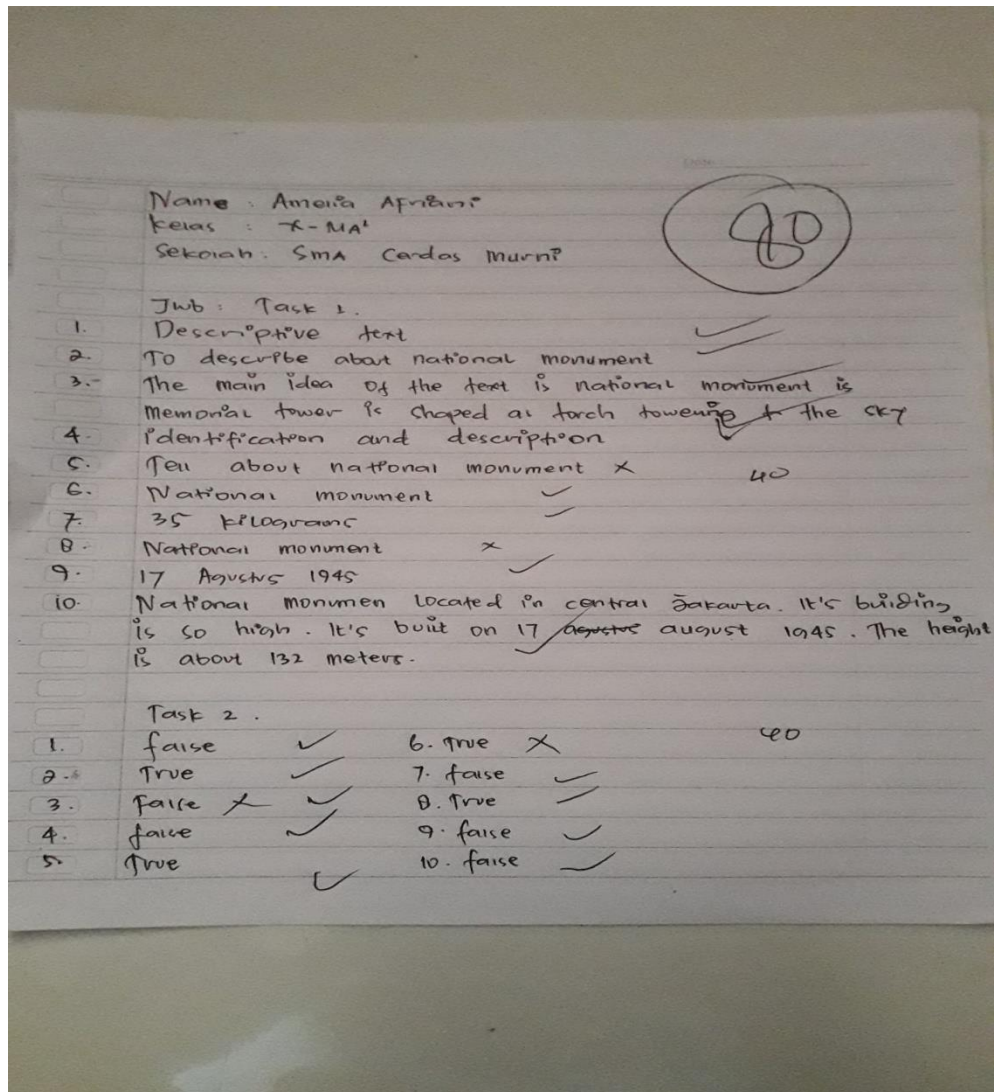 Name : Amelia Afriani
Kelas : X-MA¹
Sekolah : SMA Cerdas Murni
80
Jwb : Task 1.
1. Descriptive text
2. To describe about national monument
3.- The main idea of the text is national monument is
Memorial tower is shaped as torch towering the sky
4. identification and description
5. Tell about national monument ×
40
6. National monument
7. 35 kilograms
8. National monument ×
9. 17 Agustus 1945
10. National monumen located in central Jakarta. It's building
is so high. It's built on 17 agustus august 1945. The height
is about 132 meters.
Task 2.
1. false 6. True ×
40
2. True 7. false
3. False × 8. True
4. false 9. false
5. True 10. false